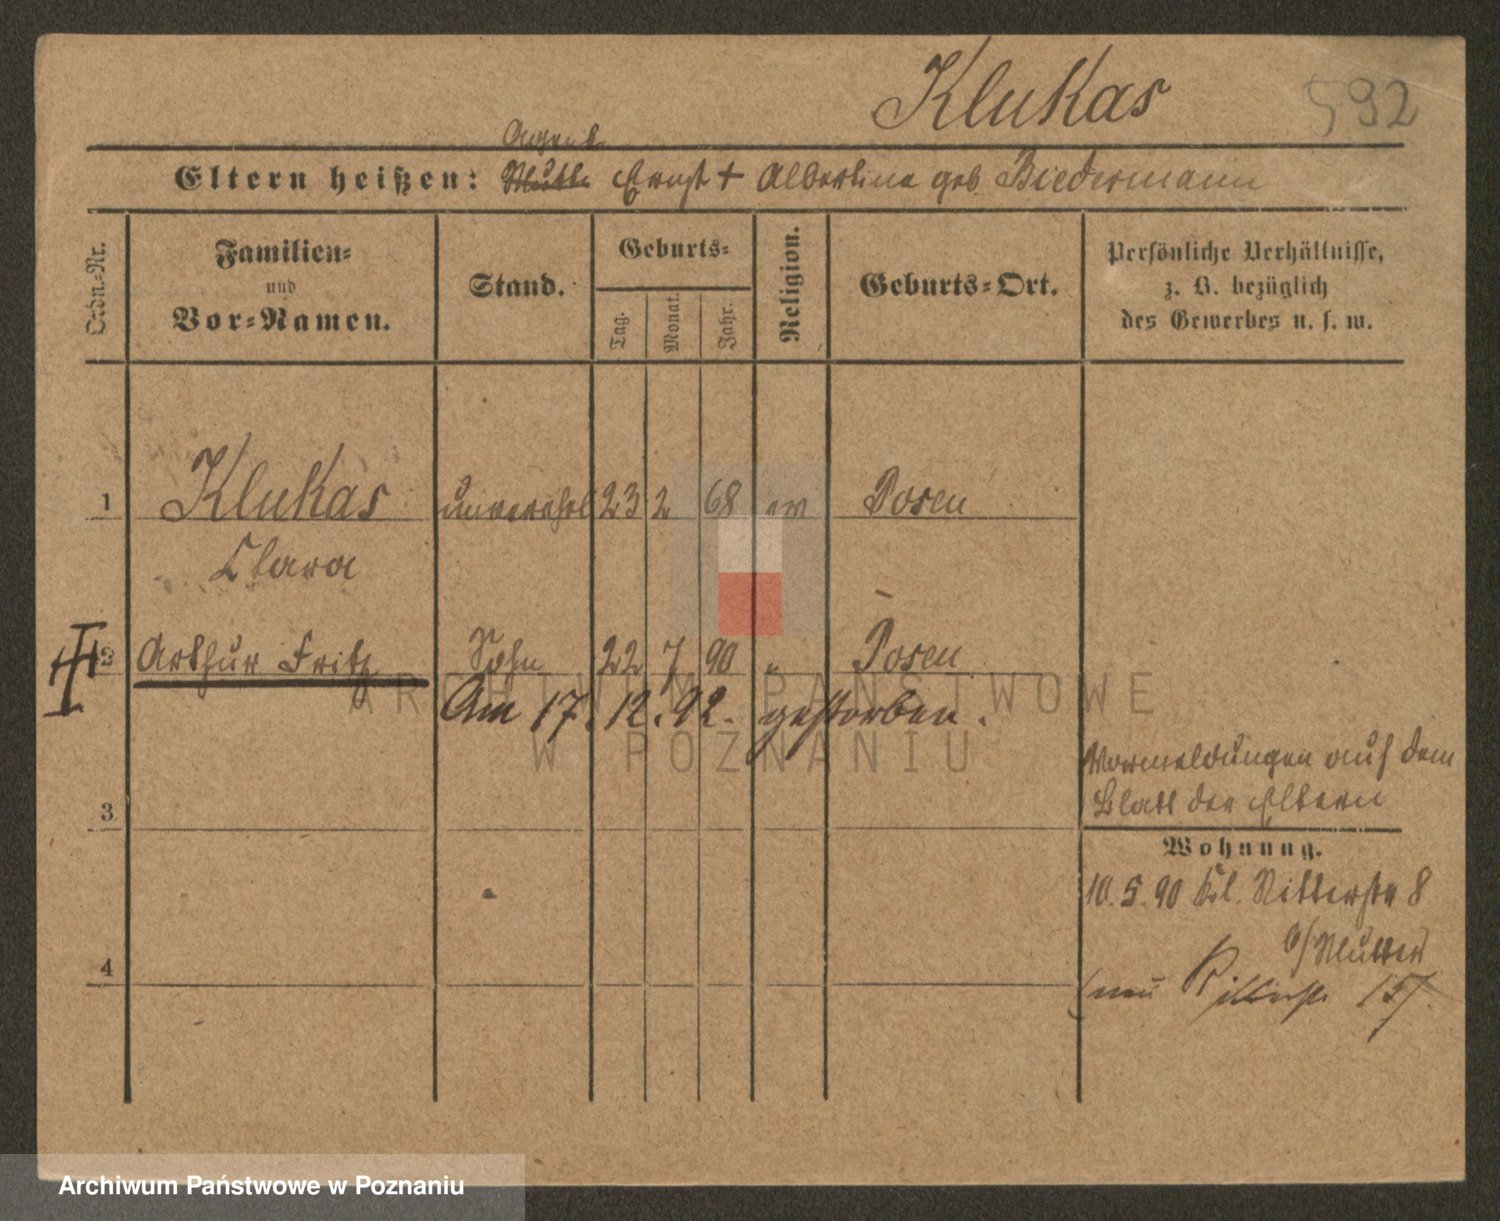 Klukas
592
Agent
Eltern heißen: Mutter Ernst + Albertine geb. Biedermann
Ordn.-Nr.
Familien-
und
Vor-Namen.
Stand.
Geburts-
Tag.
Monat.
Jahr.
Religion.
Geburts-Ort.
Persönliche Verhältnisse,
z. B. bezüglich
des Gewerbes u. s. w.
1 Klukas unverehel 23 2 68 ev Posen
Clara
2 Arthur Fritz Sohn 22 7 90 " Posen
Am 17. 12. 92. gestorben.
ARCHIWUM PAŃSTWOWE
W POZNANIU
Vormeldungen auf dem
Blatt der Eltern
3
Wohnung.
10. 5. 90 Kl. Ritterstr 8
b/ Mutter
4
(neu Ritterstr. 15
Archiwum Państwowe w Poznaniu